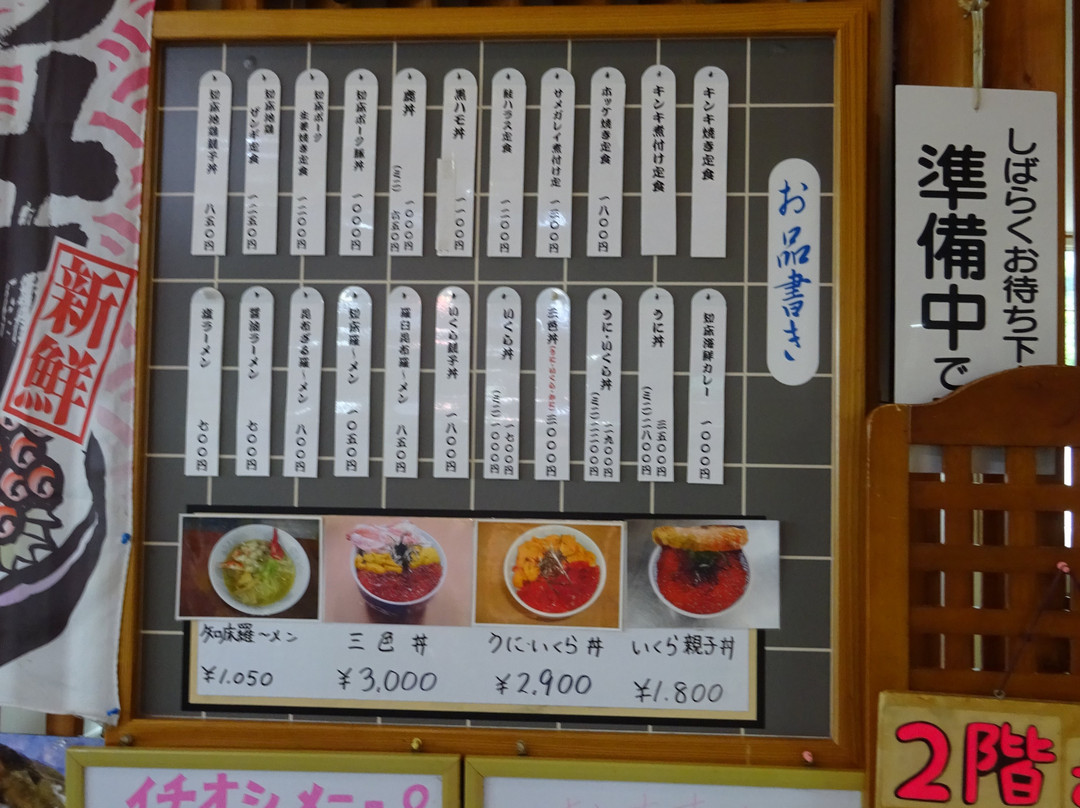 お品書き
キンキ焼き定食
キンキ煮付け定食
ホッケ焼き定食 一八〇〇円
サメガレイ煮付け定 一三〇〇円
鮭ハラス定食 一二〇〇円
黒ハモ丼 一一〇〇円
鹿丼 一〇〇〇円
(ミニ) 六五〇円
知床ポーク豚丼 一〇〇〇円
知床ポーク
生姜焼き定食 一二〇〇円
知床地鶏
ザンギ定食 一二五〇円
知床地鶏親子丼 八五〇円
知床海鮮カレー 一〇〇〇円
うに丼 三五〇〇円
(ミニ)二八〇〇円
うに・いくら丼 二九〇〇円
(ミニ)二二〇〇円
三色丼(うに・いくら・かに)三〇〇〇円
いくら丼 一七〇〇円
(ミニ)一〇〇〇円
いくら親子丼 一八〇〇円
羅臼昆布羅〜メン 八五〇円
知床羅〜メン 一〇五〇円
昆布ざる羅〜メン 八〇〇円
醤油ラーメン 七〇〇円
塩ラーメン 七〇〇円
知床羅〜メン
¥1.050
三色丼
¥3,000
うに・いくら丼
¥2,900
いくら親子丼
¥1.800
しばらくお待ち下
準備中で
新鮮
イチオシメニュー
2階